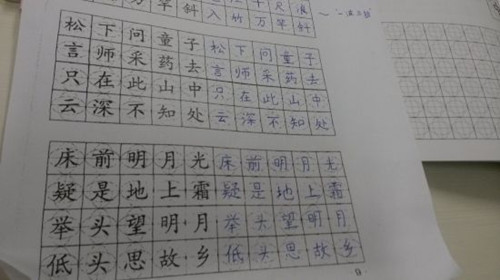 尺浪
万竿斜入竹万竿斜
松下问童子松下问童子
言师采药去言师采药去
只在此山中只在此山中
云深不知处云深不知处
床前明月光床前明月光
疑是地上霜疑是地上霜
举头望明月举头望明月
低头思故乡低头思故乡
9